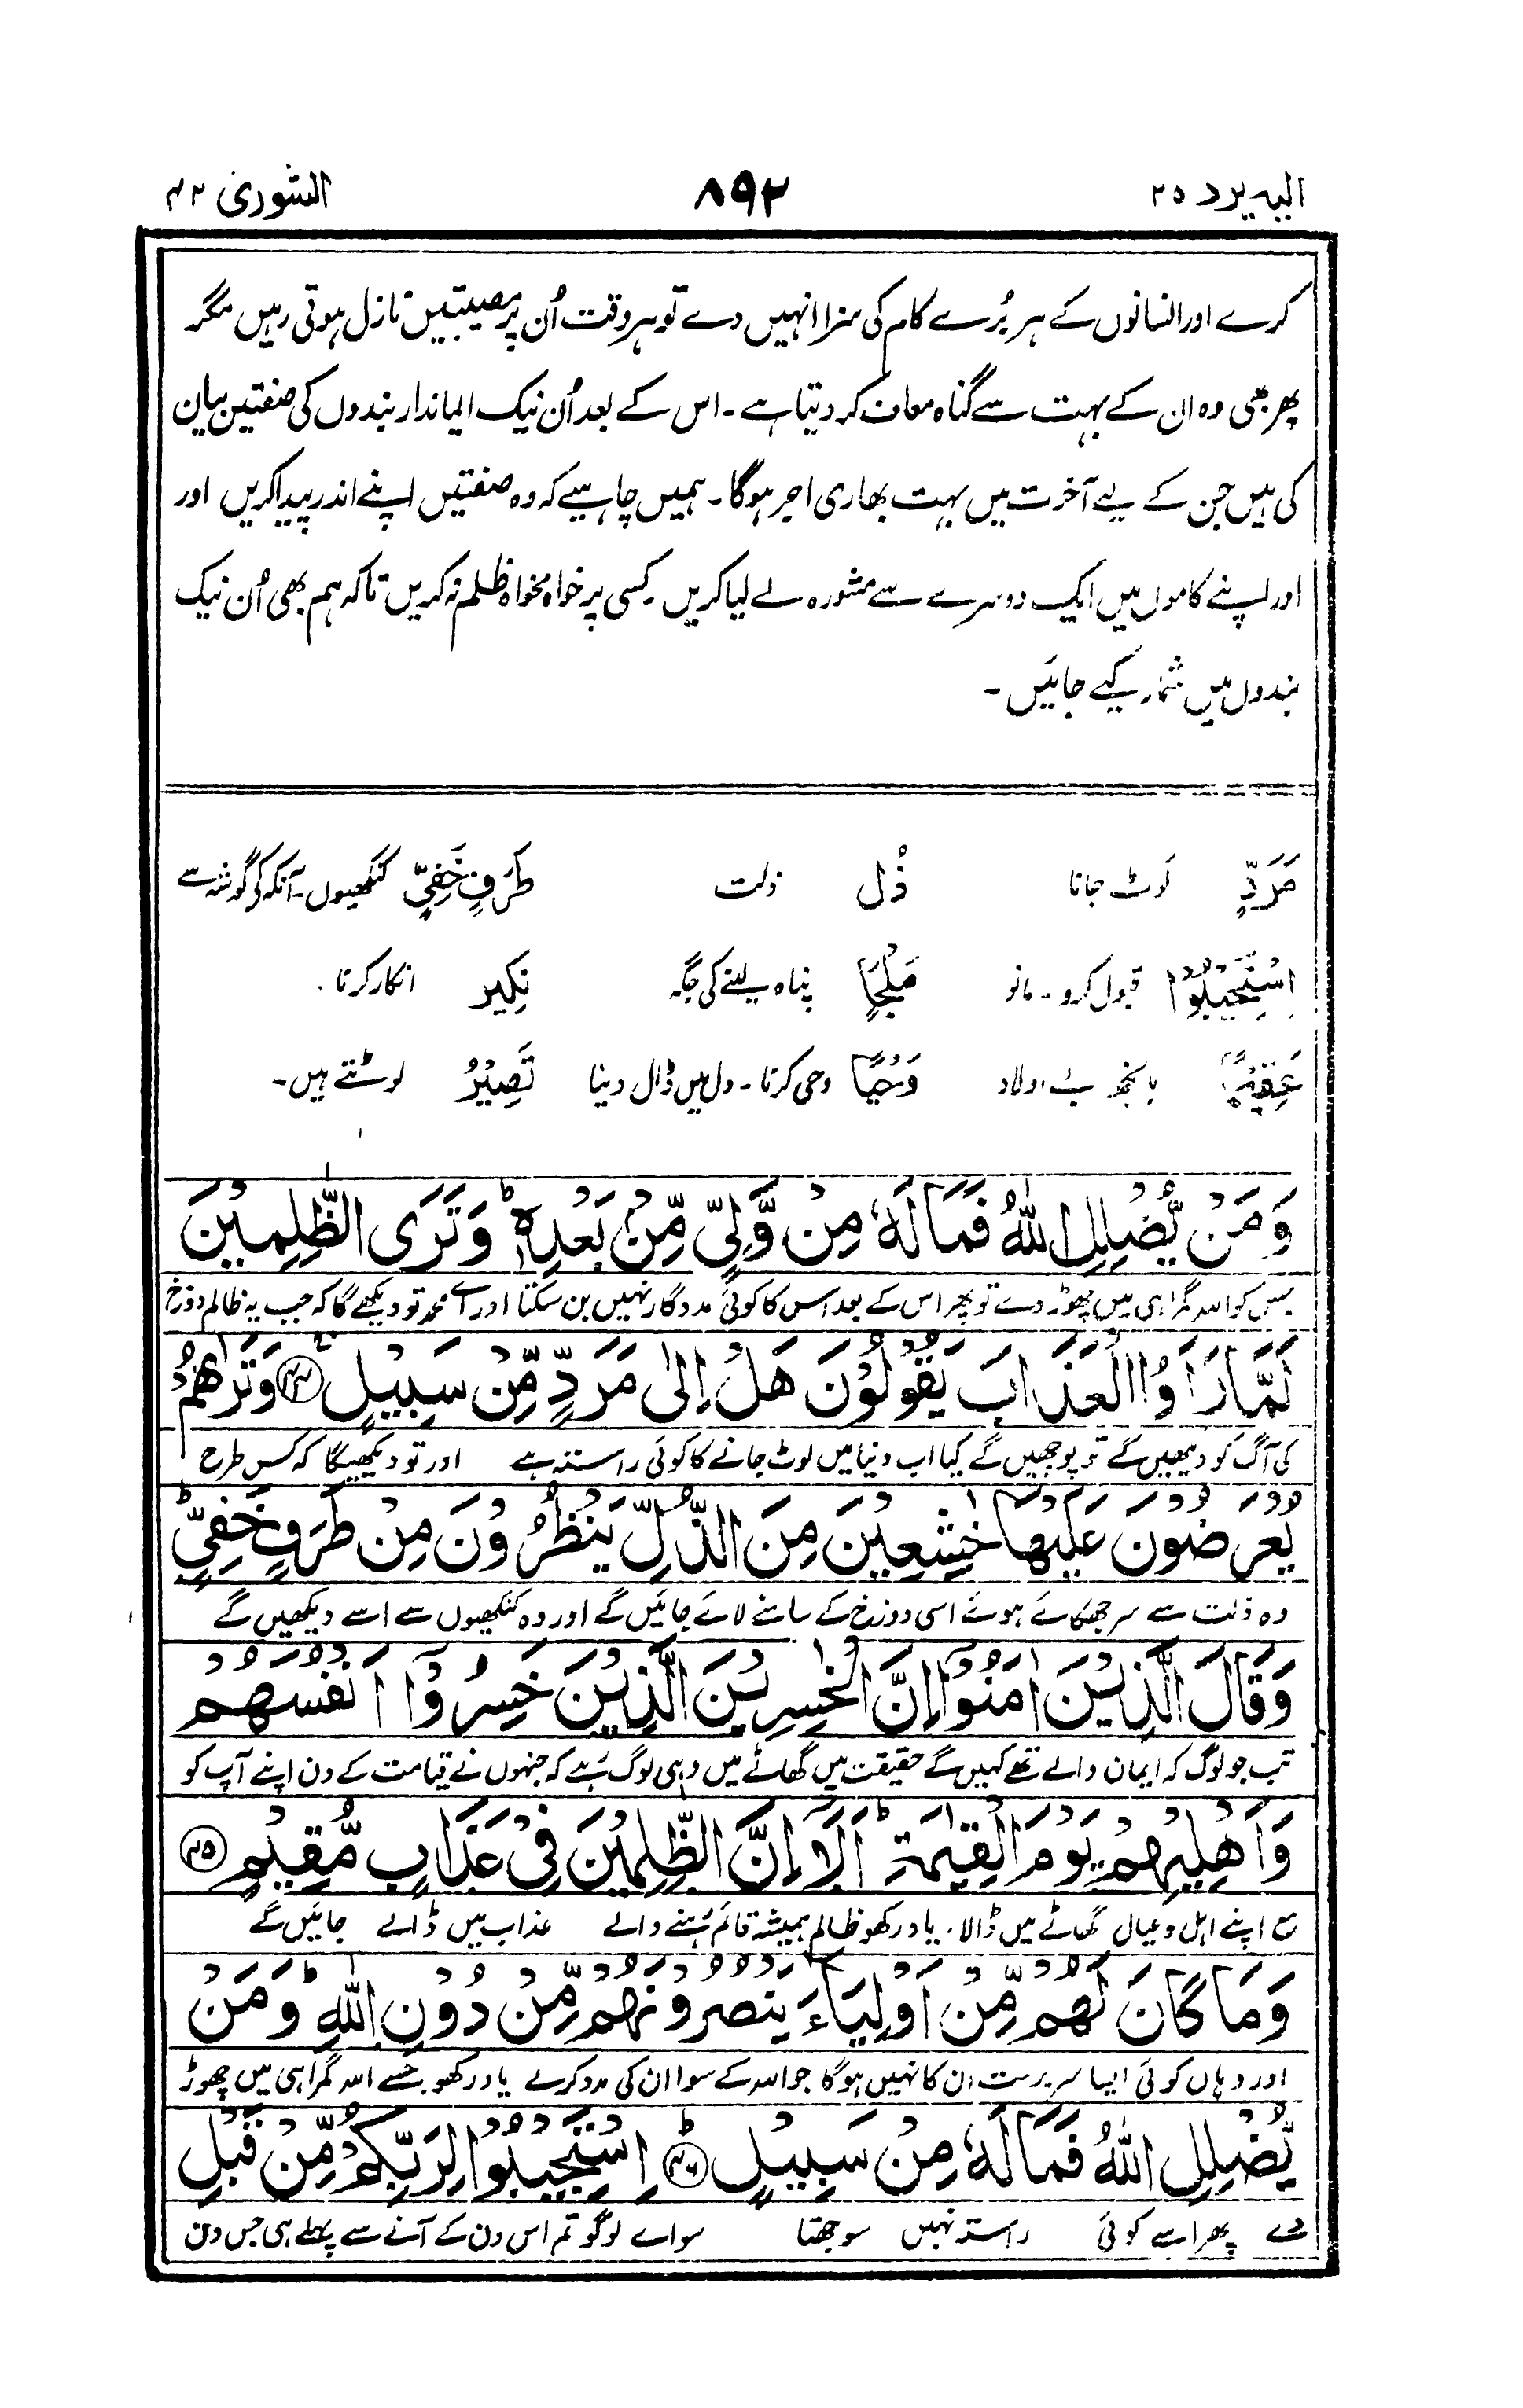 الیہ یرد ۲۵ ۸۹۲ الشوری ۴۲
کرے اور انسانوں کے ہر بُرے کام کی سزا انہیں دے تو ہر وقت اُن پر مصیبتیں نازل ہوتی رہیں مگر
پھر بھی وہ ان کے بہت سے گناہ معاف کر دیتا ہے۔ اس کے بعد اُن نیک ایماندار بندوں کی صفتیں بیان
کی ہیں جن کے لیے آخرت میں بہت بھاری اجر ہوگا۔ ہمیں چاہیے کہ وہ صفتیں اپنے اندر پیدا کریں اور
اور اپنے کاموں میں ایک دوسرے سے مشورہ لے لیا کریں۔ کسی پر خواہ مخواہ ظلم نہ کریں تاکہ ہم بھی اُن نیک
بندوں میں شمار کیے جائیں۔
مَرَدٍّ لَوٹ جانا ذُل ذلت طَرْفٍ خَفِیٍّ کنکھیوں۔ آنکھ کے گوشہ سے
اِسْتَجِیْبُوْا قبول کرو۔ مانو مَلْجَاٍ پناہ لینے کی جگہ نَکِیر انکار کرنا۔
عَقِیْمًا بانجھ بے اولاد وَحْیًا وحی کرنا۔ دل میں ڈال دینا تَصِیْرُ لوٹتے ہیں۔
وَمَنْ یُّضْلِلِ اللّٰهُ فَمَا لَهٗ مِنْ وَّلِیٍّ مِّنْۢ بَعْدِهٖ ؕ وَتَرَی الظّٰلِمِیْنَ
جس کو اللہ گمراہی میں چھوڑ دے تو پھر اس کے بعد اس کا کوئی مددگار نہیں بن سکتا اور اے محمد تو دیکھے گا کہ جب یہ ظالم دوزخ
لَمَّا رَاَوُا الْعَذَابَ یَقُوْلُوْنَ هَلْ اِلٰی مَرَدٍّ مِّنْ سَبِیْلٍ ۴۴ وَتَرٰهُمْ
کی آگ کو دیکھیں گے تو پوچھیں گے کیا اب دنیا میں لوٹ جانے کا کوئی راستہ ہے اور تو دیکھیگا کہ کس طرح
یُعْرَضُوْنَ عَلَیْهَا خٰشِعِیْنَ مِنَ الذُّلِّ یَنْظُرُوْنَ مِنْ طَرْفٍ خَفِیٍّ ؕ
وہ ذلت سے سر جھکائے ہوئے اسی دوزخ کے سامنے لائے جائیں گے اور وہ کنکھیوں سے اسے دیکھیں گے
وَقَالَ الَّذِیْنَ اٰمَنُوْۤا اِنَّ الْخٰسِرِیْنَ الَّذِیْنَ خَسِرُوْۤا اَنْفُسَهُمْ
تب جو لوگ کہ ایمان والے تھے کہیں گے حقیقت میں گھاٹے میں وہی لوگ ہے کہ جنہوں نے قیامت کے دن اپنے آپ کو
وَاَهْلِیْهِمْ یَوْمَ الْقِیٰمَةِ ؕ اَلَاۤ اِنَّ الظّٰلِمِیْنَ فِیْ عَذَابٍ مُّقِیْمٍ ۴۵
مع اپنے اہل و عیال گھاٹے میں ڈالا۔ یاد رکھو ظالم ہمیشہ قائم رہنے والے عذاب میں ڈالے جائیں گے
وَمَا كَانَ لَهُمْ مِّنْ اَوْلِیَآءَ یَنْصُرُوْنَهُمْ مِّنْ دُوْنِ اللّٰهِ ؕ وَمَنْ
اور وہاں کوئی ایسا سرپرست ان کا نہیں ہوگا جو اللہ کے سوا ان کی مدد کرے یاد رکھو جسے اللہ گمراہی میں چھوڑ
یُّضْلِلِ اللّٰهُ فَمَا لَهٗ مِنْ سَبِیْلٍ ؕ ۴۶ اِسْتَجِیْبُوْا لِرَبِّكُمْ مِّنْ قَبْلِ
دے پھر اسے کوئی راستہ نہیں سوجھتا سو اے لوگو تم اس دن کے آنے سے پہلے ہی جس دن